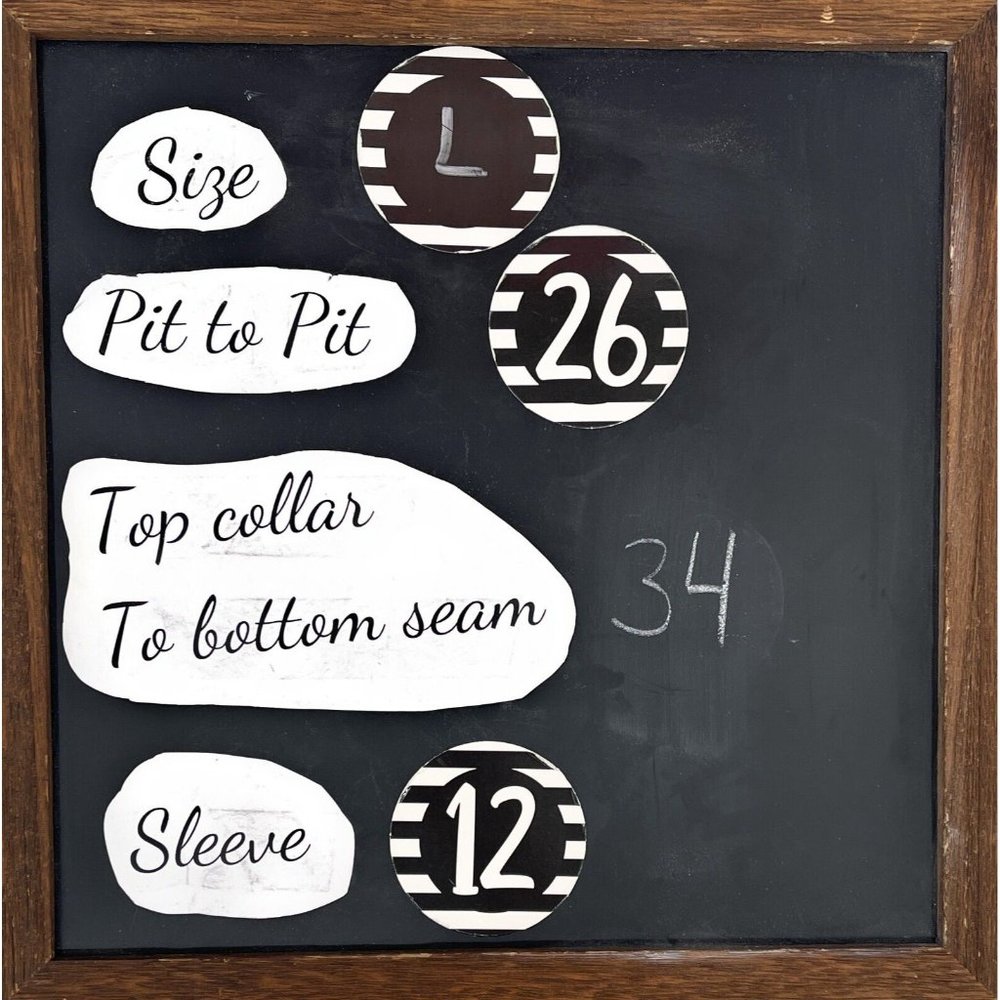 Size L
Pit to Pit 26
Top collar
To bottom seam 34
Sleeve 12